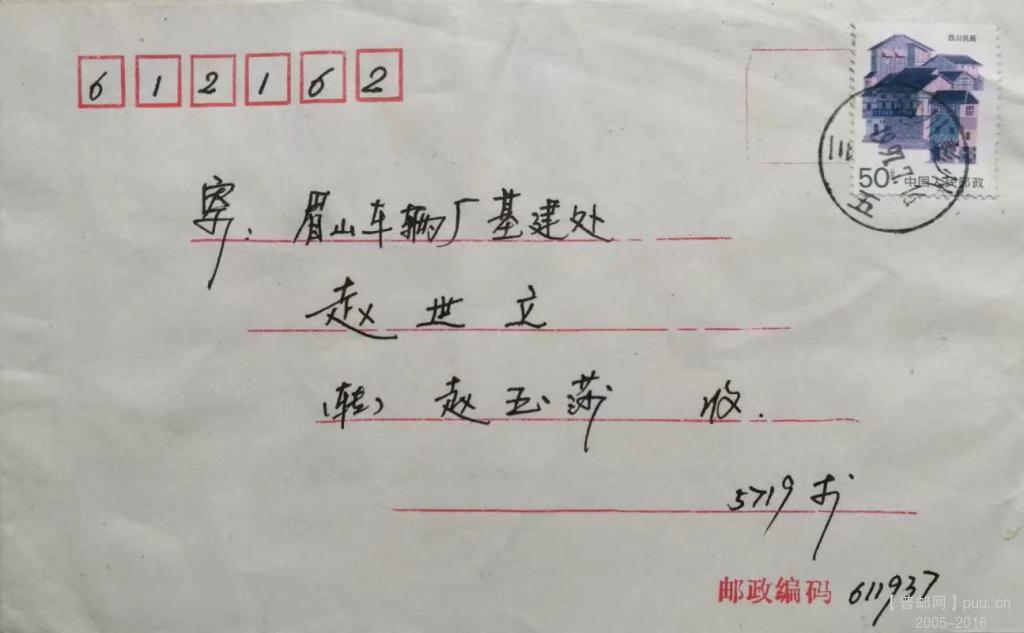 612162
四川民居
50分 中国人民邮政
寄: 眉山车辆厂基建处
赵世立
(转) 赵玉莎 收.
5719厂
邮政编码 611937
【普邮网】puu.cn
2005-2018